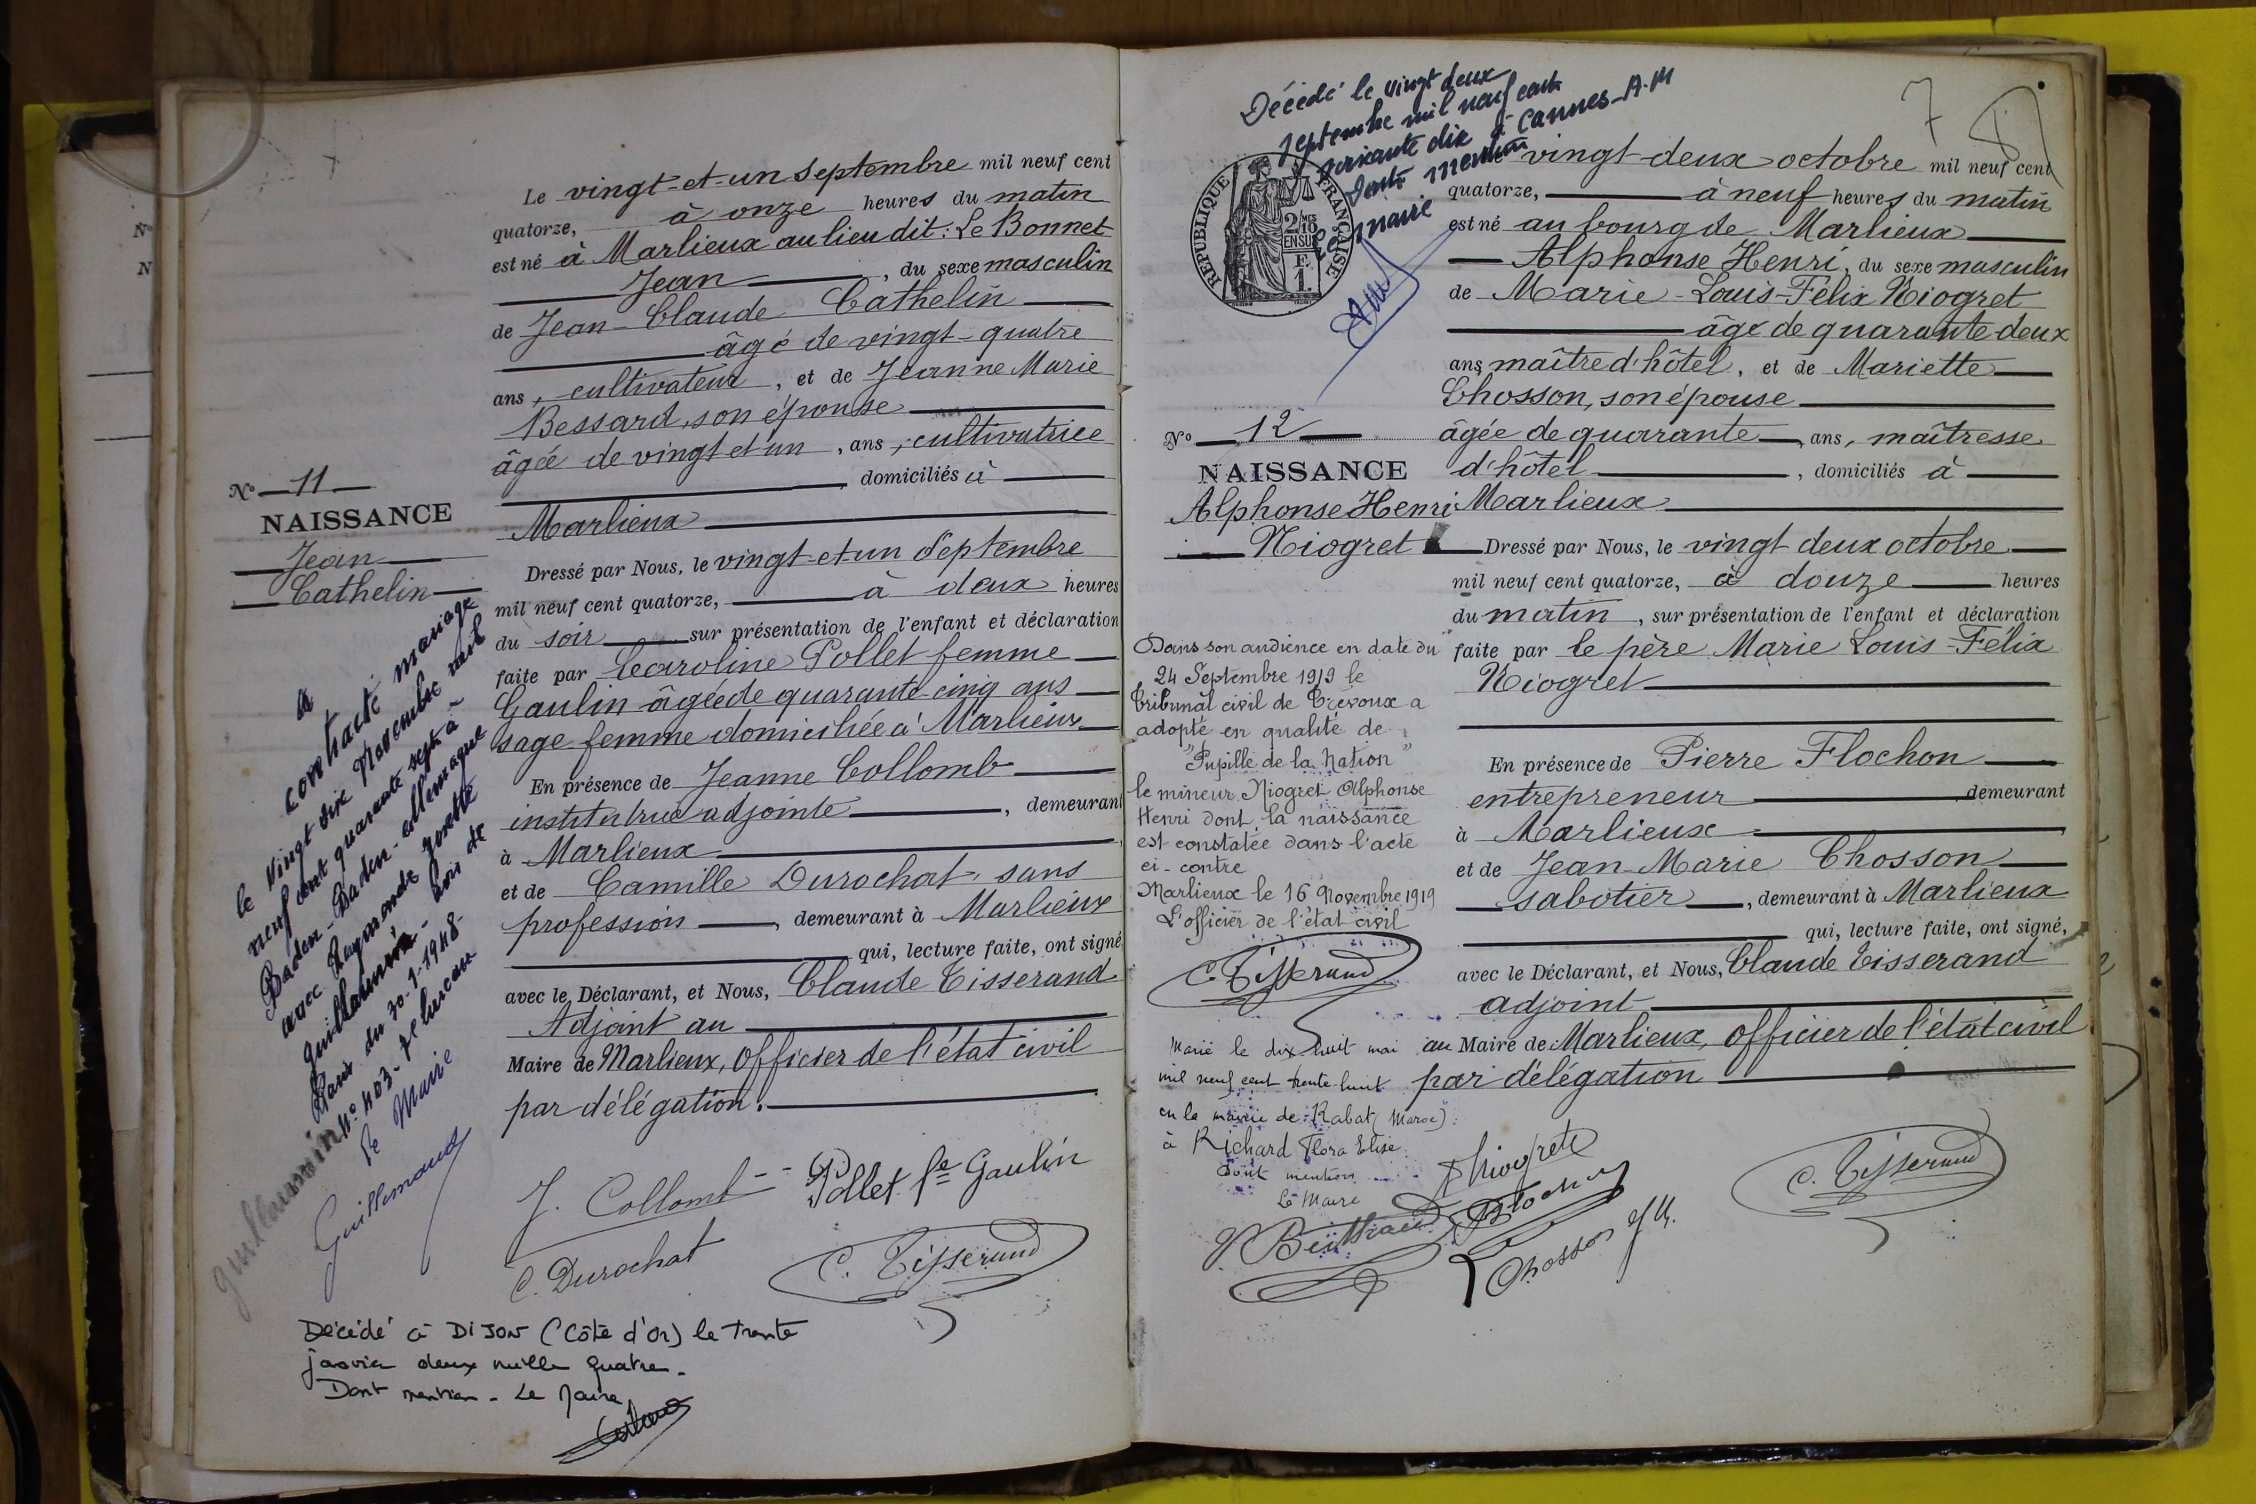 Le vingt-et-un Septembre mil neuf cent
quatorze, à onze heures du matin
est né à Marlieux au lieu dit : Le Bonnet
Jean, du sexe masculin
de Jean-Claude Cathelin
âgé de vingt-quatre
ans, cultivateur, et de Jeanne Marie
Bessard, son épouse
âgée de vingt et un, ans, cultivatrice
domiciliés à
Marlieux
Dressé par Nous, le vingt-et-un Septembre
mil neuf cent quatorze, à deux heures
du soir sur présentation de l'enfant et déclaration
faite par Caroline Pollet femme
Gaulin âgée de quarante-cinq ans
sage-femme domiciliée à Marlieux
En présence de Jeanne Collomb
institutrice adjointe, demeurant
à Marlieux
et de Camille Durochat, sans
profession, demeurant à Marlieux
qui, lecture faite, ont signé
avec le Déclarant, et Nous, Claude Tisserand
Adjoint au
Maire de Marlieux, Officier de l'état civil
par délégation.
J. Collomb
Pollet fe Gaulin
C. Durochat
C. Tisserand
N° 11
NAISSANCE
Jean
Cathelin
A
contracté mariage
le vingt dix Novembre mil
neuf cent quarante sept à
Baden-Baden - Allemagne
avec Raymonde Josette
Guillaumin
du 30-1-1948-
N° 403-
Le Maire
Guillemaud
Guillaumin
Décédé à DIJON (Côte d'Or) le trente
janvier deux mille quatre.
Dont mention - Le Maire
7
Décédé le vingt deux
septembre mil neuf cent
soixante dix à Cannes-A.M
Dont mention
Le maire
RÉPUBLIQUE FRANÇAISE
2/10 MES
EN SUS
F.
1.
vingt-deux octobre mil neuf cent
quatorze, à neuf heures du matin
est né au bourg de Marlieux
Alphonse Henri, du sexe masculin
de Marie-Louis-Félix Niogret
âgé de quarante-deux
ans, maître d'hôtel, et de Mariette
Chosson, son épouse
âgée de quarante ans, maîtresse
d'hôtel, domiciliés à
Marlieux
Dressé par Nous, le vingt deux octobre
mil neuf cent quatorze, à douze heures
du matin, sur présentation de l'enfant et déclaration
faite par le père Marie Louis-Félix
Niogret
En présence de Pierre Flochon
entrepreneur demeurant
à Marlieux
et de Jean-Marie Chosson
sabotier, demeurant à Marlieux
qui, lecture faite, ont signé,
avec le Déclarant, et Nous, Claude Tisserand
adjoint
au Maire de Marlieux, Officier de l'état civil
par délégation
N° 12
NAISSANCE
Alphonse Henri
Niogret
Dans son audience en date du
24 Septembre 1919 le
Tribunal civil de Trévoux a
adopté en qualité de
"Pupille de la Nation"
le mineur Niogret Alphonse
Henri dont la naissance
est constatée dans l'acte
ci-contre
Marlieux le 16 Novembre 1919
L'officier de l'état civil
C. Tisserand
Marié le dix huit mai
mil neuf cent trente-huit
en la mairie de Rabat (Maroc)
à Richard Flora Elise
Dont mention
Le Maire
Niogret
Flochon
Chosson J M.
C. Tisserand